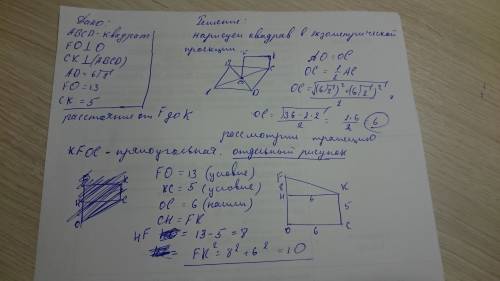 Дано:
ABCD - квадрат
FO⊥O
CK⊥(ABCD)
AD = 6√2
FO = 13
CK = 5
расстояние от F до K
Решение:
нарисуем квадрат в изометрической
проекции.
AO = OC
OC = 1/2 AC
OC = √((6√2)² + (6√2)²) / 2
OC = √(36·2·2) / 2 = 2·6 / 2 = 6
рассмотрим трапецию
KFOC - прямоугольная. отдельный рисунок
FO = 13 (условие)
KC = 5 (условие)
OC = 6 (нашли)
CH = FK
HF = 13 - 5 = 8
FK² = 8² + 6² = 10
F
8
H
6
K
5
O
6
C